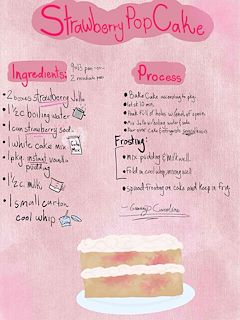 Strawberry Pop Cake
Ingredients:
9x13 pan
2 medium pan
• 2 boxes strawberry Jello
• 1½ c. boiling water
• 1 can strawberry soda
• 1 white cake mix
• 1 pkg. instant vanilla
pudding
• 1½ c. milk
• 1 small carton
cool whip
Process
• Bake Cake according to pkg.
• let sit 10 min.
• Poke full of holes w/ end of spoon
• Mix Jello w/ boiling water & soda
• Pour over Cake & refrigerate
Frosting:
• mix pudding & milk well
• Fold in cool whip, mixing well
• spread frosting on cake and keep in frig.